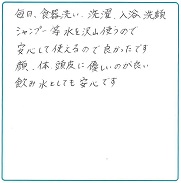 毎日、食器洗い、洗濯、入浴、洗顔
シャンプー等水を沢山使うので
安心して使えるので良かったです
顔、体、頭皮に優しいのが良い
飲み水としても安心です